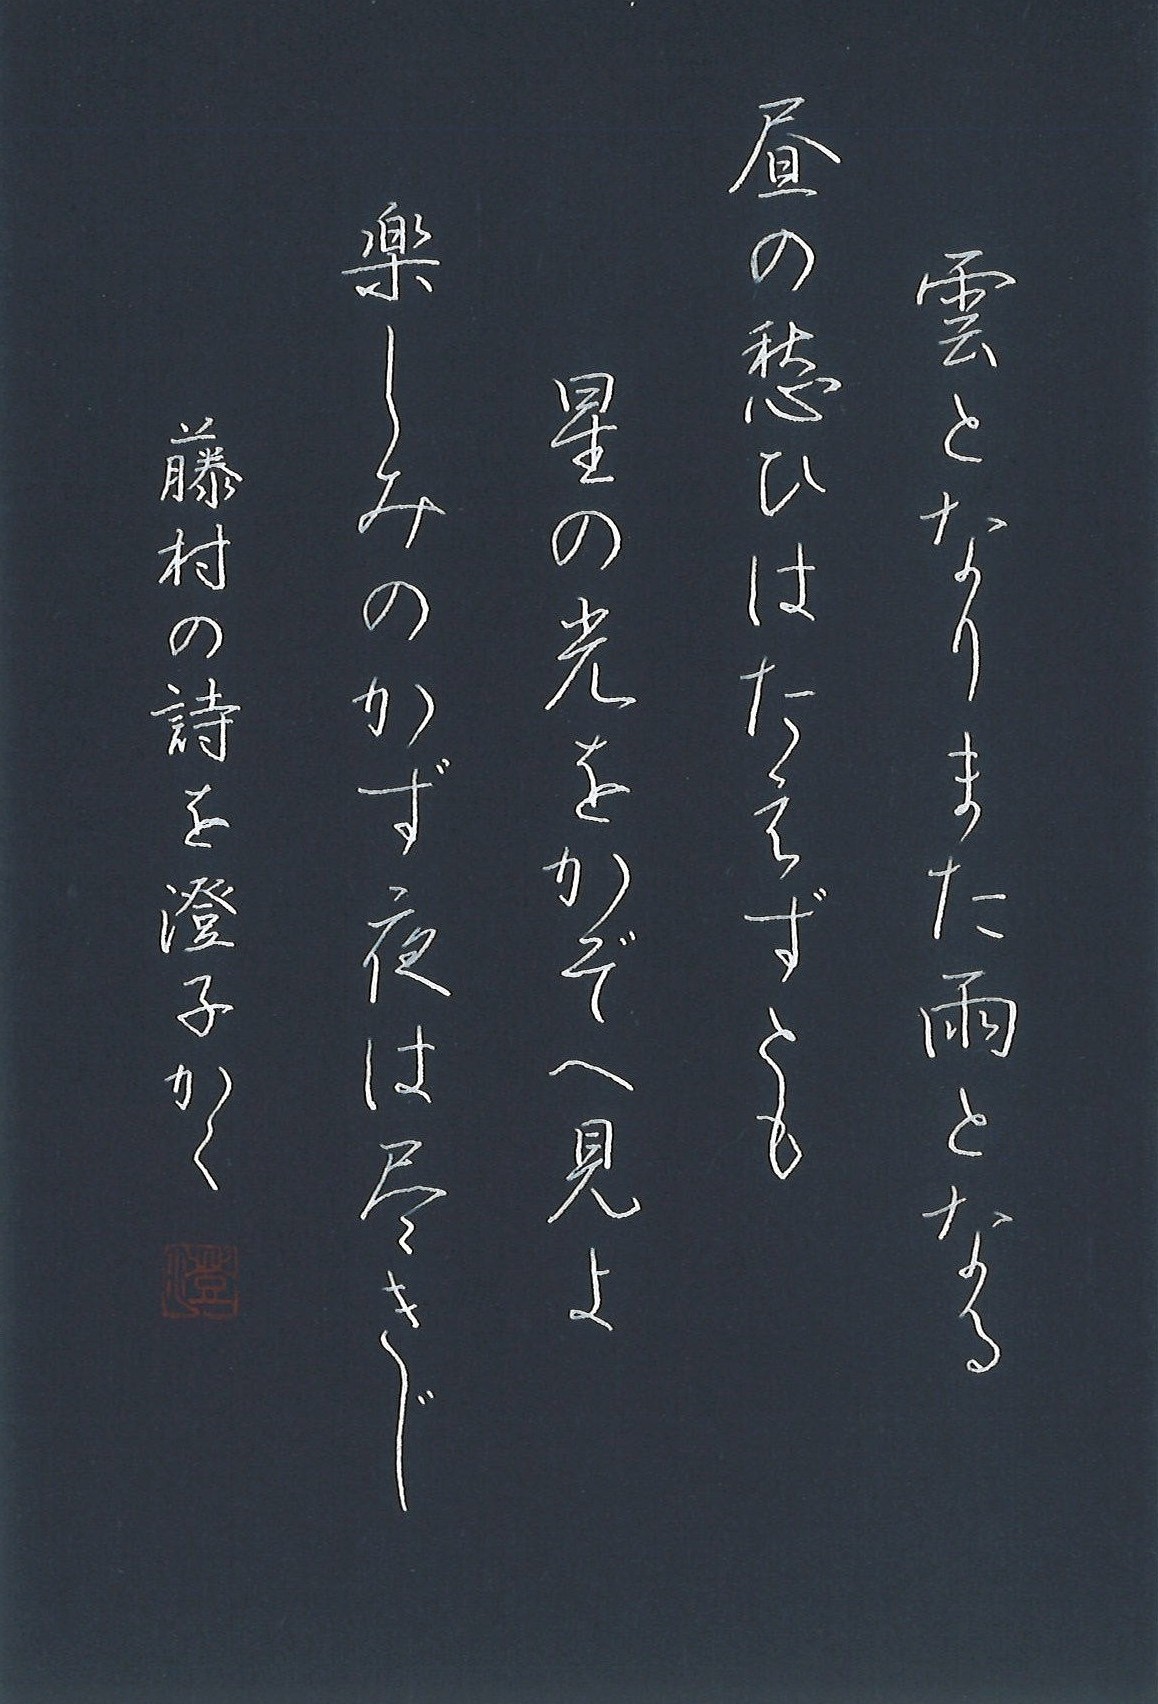 雲となりまた雨となる
昼の愁ひはたえずとも
星の光をかぞへ見よ
楽しみのかず夜は尽きじ
藤村の詩を澄子かく
澄